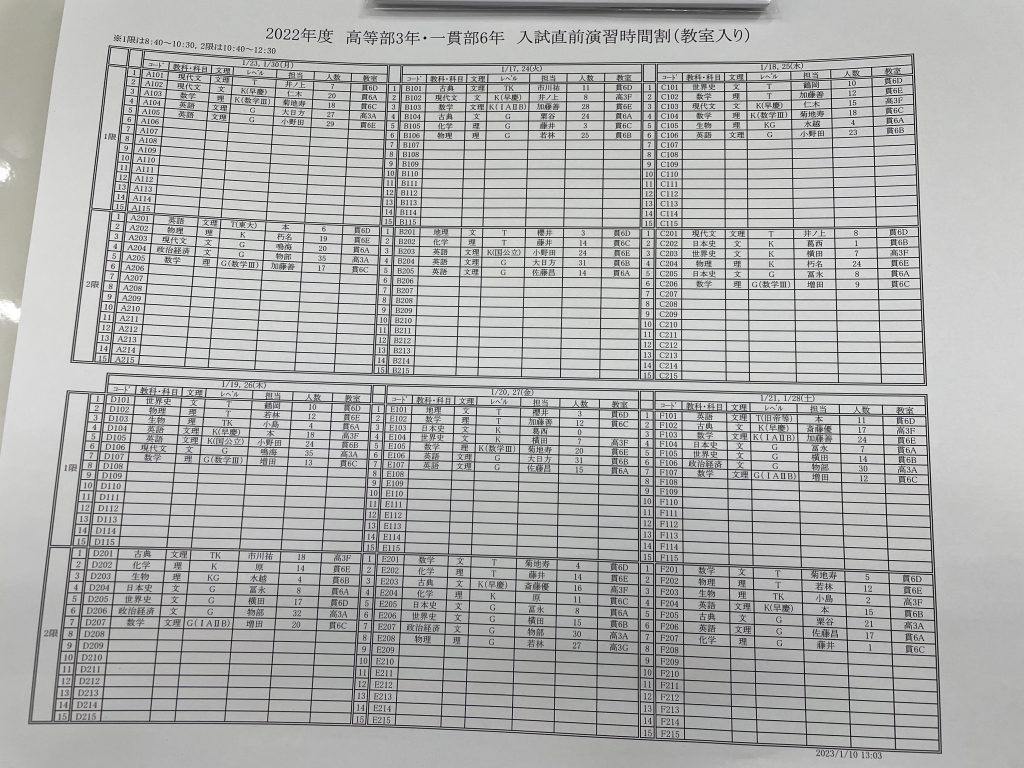 2022年度 高等部3年・一貫部6年 入試直前演習時間割(教室入り)
※1限は8:40～10:30, 2限は10:40～12:30
1/23, 1/30(月)
コード 教科・科目 文理 レベル 担当 人数 教室
1限
1 A101 現代文 文 T 井ノ上 7 貫6D
2 A102 現代文 文 K(早慶) 仁木 20 貫6A
3 A103 数学 理 K(数学Ⅲ) 菊地寿 18 貫6C
4 A104 英語 文理 G 大日方 27 高3A
5 A105 英語 文理 G 小野田 29 貫6E
6 A106
7 A107
8 A108
9 A109
10 A110
11 A111
12 A112
13 A113
14 A114
15 A115
2限
1 A201 英語 文理 T(東大) 本 6 貫6D
2 A202 物理 理 K 朽名 19 貫6E
3 A203 現代文 文 G 鳴海 20 貫6A
4 A204 政治経済 文 G 物部 35 高3A
5 A205 数学 理 G(数学Ⅲ) 加藤善 17 貫6C
6 A206
7 A207
8 A208
9 A209
10 A210
11 A211
12 A212
13 A213
14 A214
15 A215
1/17, 24(火)
コード 教科・科目 文理 レベル 担当 人数 教室
1 B101 古典 文 TK 市川祐 11 貫6D
2 B102 現代文 文 K(早慶) 井ノ上 8 高3F
3 B103 数学 文 K(ⅠAⅡB) 加藤善 28 貫6E
4 B104 古典 文 G 栗谷 24 貫6A
5 B105 化学 理 G 藤井 3 貫6C
6 B106 物理 理 G 若林 25 貫6B
7 B107
8 B108
9 B109
10 B110
11 B111
12 B112
13 B113
14 B114
15 B115
1 B201 地理 文 T 櫻井 3 貫6D
2 B202 化学 理 T 藤井 14 貫6C
3 B203 英語 文理 K(国公立) 小野田 24 貫6E
4 B204 英語 文理 G 大日方 31 貫6B
5 B205 英語 文理 G 佐藤昌 14 貫6A
6 B206
7 B207
8 B208
9 B209
10 B210
11 B211
12 B212
13 B213
14 B214
15 B215
1/18, 25(水)
コード 教科・科目 文理 レベル 担当 人数 教室
1 C101 世界史 文 T 鶴岡 10 貫6D
2 C102 数学 理 T 加藤善 12 貫6E
3 C103 現代文 文 K(早慶) 仁木 15 高3F
4 C104 数学 理 K(数学Ⅲ) 菊地寿 18 貫6C
5 C105 生物 理 KG 水越 4 貫6A
6 C106 英語 文理 G 小野田 23 貫6B
7 C107
8 C108
9 C109
10 C110
11 C111
12 C112
13 C113
14 C114
15 C115
1 C201 現代文 文理 T 井ノ上 8 貫6D
2 C202 日本史 文 K 葛西 1 貫6B
3 C203 世界史 文 K 横田 7 高3F
4 C204 物理 理 K 朽名 24 貫6E
5 C205 日本史 文 G 冨永 8 貫6A
6 C206 数学 理 G(数学Ⅲ) 増田 9 貫6C
7 C207
8 C208
9 C209
10 C210
11 C211
12 C212
13 C213
14 C214
15 C215
1/19, 26(木)
コード 教科・科目 文理 レベル 担当 人数 教室
1限
1 D101 世界史 文 T 鶴岡 10 貫6D
2 D102 物理 理 T 若林 12 貫6E
3 D103 生物 理 TK 小島 4 貫6A
4 D104 英語 文理 K(早慶) 本 18 高3F
5 D105 英語 文理 K(国公立) 小野田 24 貫6B
6 D106 現代文 文 G 鳴海 35 高3A
7 D107 数学 理 G(数学Ⅲ) 増田 13 貫6C
8 D108
9 D109
10 D110
11 D111
12 D112
13 D113
14 D114
15 D115
2限
1 D201 古典 文理 TK 市川祐 18 高3F
2 D202 化学 理 K 原 14 貫6E
3 D203 生物 理 KG 水越 4 貫6B
4 D204 日本史 文 G 冨永 8 貫6A
5 D205 世界史 文 G 横田 17 貫6D
6 D206 政治経済 文 G 物部 32 高3A
7 D207 数学 文理 G(ⅠAⅡB) 増田 20 貫6C
8 D208
9 D209
10 D210
11 D211
12 D212
13 D213
14 D214
15 D215
1/20, 27(金)
コード 教科・科目 文理 レベル 担当 人数 教室
1 E101 地理 文 T 櫻井 3 貫6D
2 E102 数学 文 T 加藤善 12 貫6C
3 E103 日本史 文 K 葛西 0
4 E104 世界史 文 K 横田 7 高3F
5 E105 数学 理 K(数学Ⅲ) 菊地寿 20 貫6E
6 E106 英語 文理 G 大日方 31 貫6B
7 E107 英語 文理 G 佐藤昌 15 貫6A
8 E108
9 E109
10 E110
11 E111
12 E112
13 E113
14 E114
15 E115
1 E201 数学 文 T 菊地寿 4 貫6D
2 E202 化学 理 T 藤井 14 貫6E
3 E203 古典 文 K(早慶) 斎藤優 16 高3F
4 E204 化学 理 K 原 11 貫6C
5 E205 日本史 文 G 冨永 8 貫6A
6 E206 世界史 文 G 横田 15 貫6B
7 E207 政治経済 文 G 物部 30 高3A
8 E208 物理 理 G 若林 27 高3G
9 E209
10 E210
11 E211
12 E212
13 E213
14 E214
15 E215
1/21, 1/28(土)
コード 教科・科目 文理 レベル 担当 人数 教室
1 F101 英語 文理 T(旧帝等) 本 11 貫6D
2 F102 古典 文 K(早慶) 斎藤優 17 高3F
3 F103 数学 文 K(ⅠAⅡB) 加藤善 24 貫6E
4 F104 日本史 文 G 冨永 7 貫6A
5 F105 世界史 文 G 横田 14 貫6B
6 F106 政治経済 文 G 物部 30 高3A
7 F107 数学 文理 G(ⅠAⅡB) 増田 12 貫6C
8 F108
9 F109
10 F110
11 F111
12 F112
13 F113
14 F114
15 F115
1 F201 数学 文 T 菊地寿 5 貫6D
2 F202 物理 理 T 若林 12 貫6E
3 F203 生物 理 TK 小島 2 高3F
4 F204 英語 文理 K(早慶) 本 15 貫6B
5 F205 古典 文 G 栗谷 21 高3A
6 F206 英語 文理 G 佐藤昌 17 貫6A
7 F207 化学 理 G 藤井 1 貫6C
8 F208
9 F209
10 F210
11 F211
12 F212
13 F213
14 F214
15 F215
2023/1/10 13:03